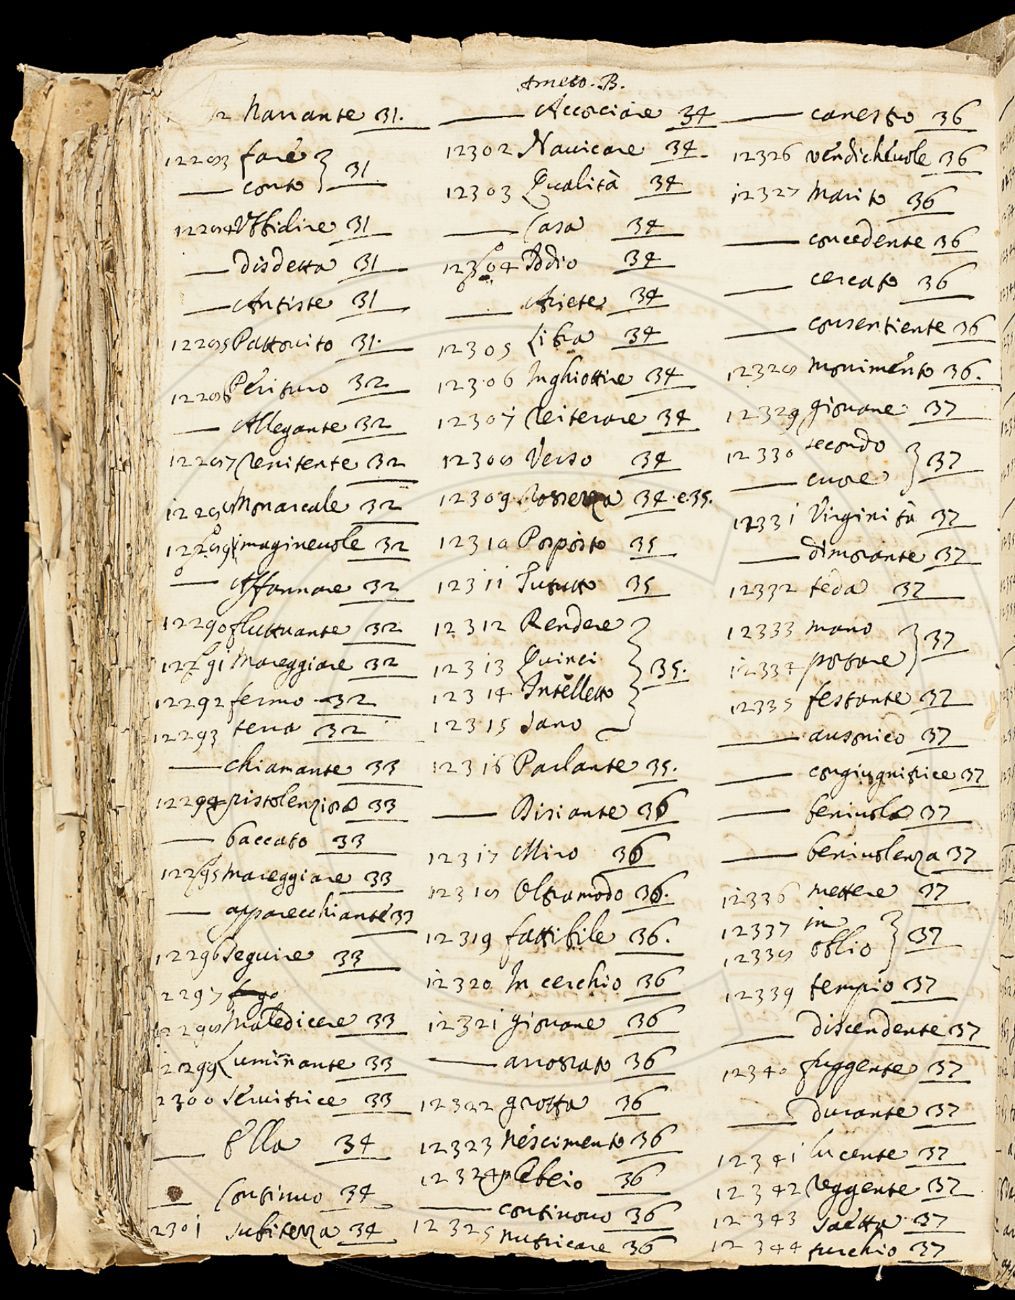 Ameto. B.
2 Narrante 31.
12283 fare } 31
— conto
12284 Vbbidire 31
— disdetta 31
— Artiste 31
12285 Pattovito 31.
12286 Perituro 32
— Allegante 32
12287 Renitente 32
12288 Monarcale 32
12289 Imaginevole 32
— Affannare 32
12290 fluttuante 32
12291 Mareggiare 32
12292 fermo 32
12293 terra 32
— chiamante 33
12294 pistolenzioso 33
— baccato 33
12295 Mareggiare 33
— apparecchiante 33
12296 Seguire 33
2297
12298 Maledicere 33
12299 Luminante 33
2300 Servitrice 33
— Ella 34
— Continuo 34
2301 Subitezza 34
— Accorciare 34
12302 Navicare 34.
12303 Qualità 34
— Casa 34
12304 Iddio 34
— Ariete 34
12305 Libra 34
12306 Inghiottire 34
12307 Reiterare 34
12308 Verso 34
12309 Rossezza 34. e 35.
12310 Proposito 35
12311 Tututto 35
12312 Rendere
12313 Quinci } 35.
12314 Intelletto
12315 Sano
12316 Parlante 35.
— Disiante 36
12317 Miro 36
12318 Oltramodo 36.
12319 fattibile 36.
12320 In cerchio 36
12321 giovane 36
— arrossato 36
12322 grotta 36
12323 Nescimento 36
12324 plebeio 36
— continovo 36
12325 Nutricare 36
— canestro 36
12326 vendichevole 36
12327 Marito 36
— concedente 36
— cercato 36
— consentiente 36
12328 Monimento 36.
12329 giovane 37
12330 secondo } 37
— cuore
12331 Virginità 37
— dimorante 37
12332 teda 37
12333 mano } 37
12334 portare
12335 festante 37
— ausonico 37
— congiugnitrice 37
— benivola 37
— benivolenza 37
12336 mettere 37
12337 in } 37
12338 oblio
12339 tempio 37
— discendente 37
12340 fuggente 37
— durante 37
12341 lucente 37
12342 Reggente 37
12343 Saetta 37
12344 turchio 37